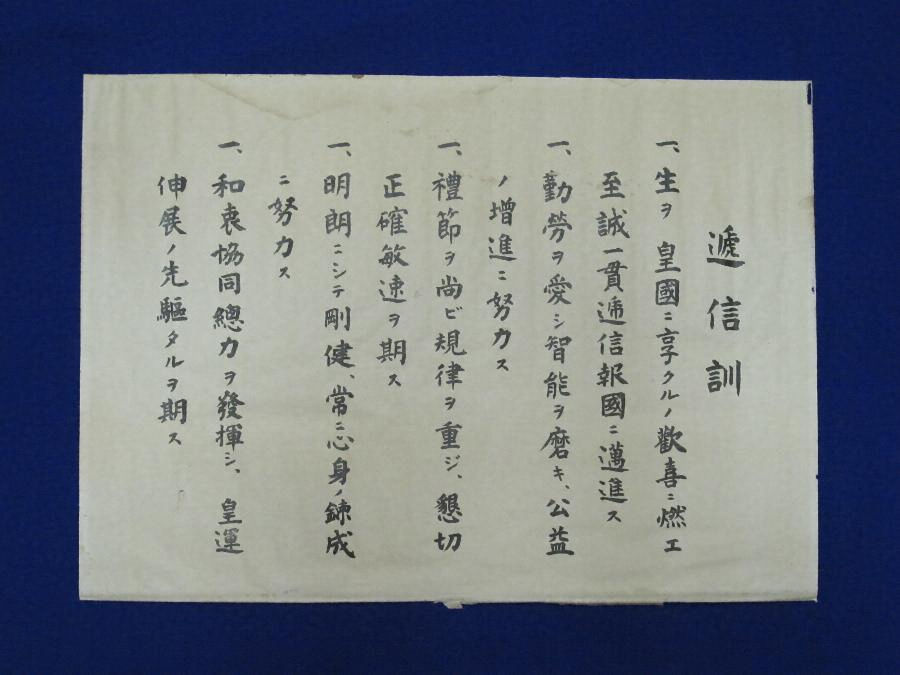 遞信訓
一、生ヲ 皇國ニ享クルノ歡喜ニ燃エ
至誠一貫遞信報國ニ邁進ス
一、勤勞ヲ愛シ智能ヲ磨キ、公益
ノ增進ニ努力ス
一、禮節ヲ尚ビ規律ヲ重ジ、懇切
正確敏速ヲ期ス
一、明朗ニシテ剛健、常ニ心身ノ鍊成
ニ努力ス
一、和衷協同總力ヲ發揮シ、皇運
伸展ノ先驅タルヲ期ス